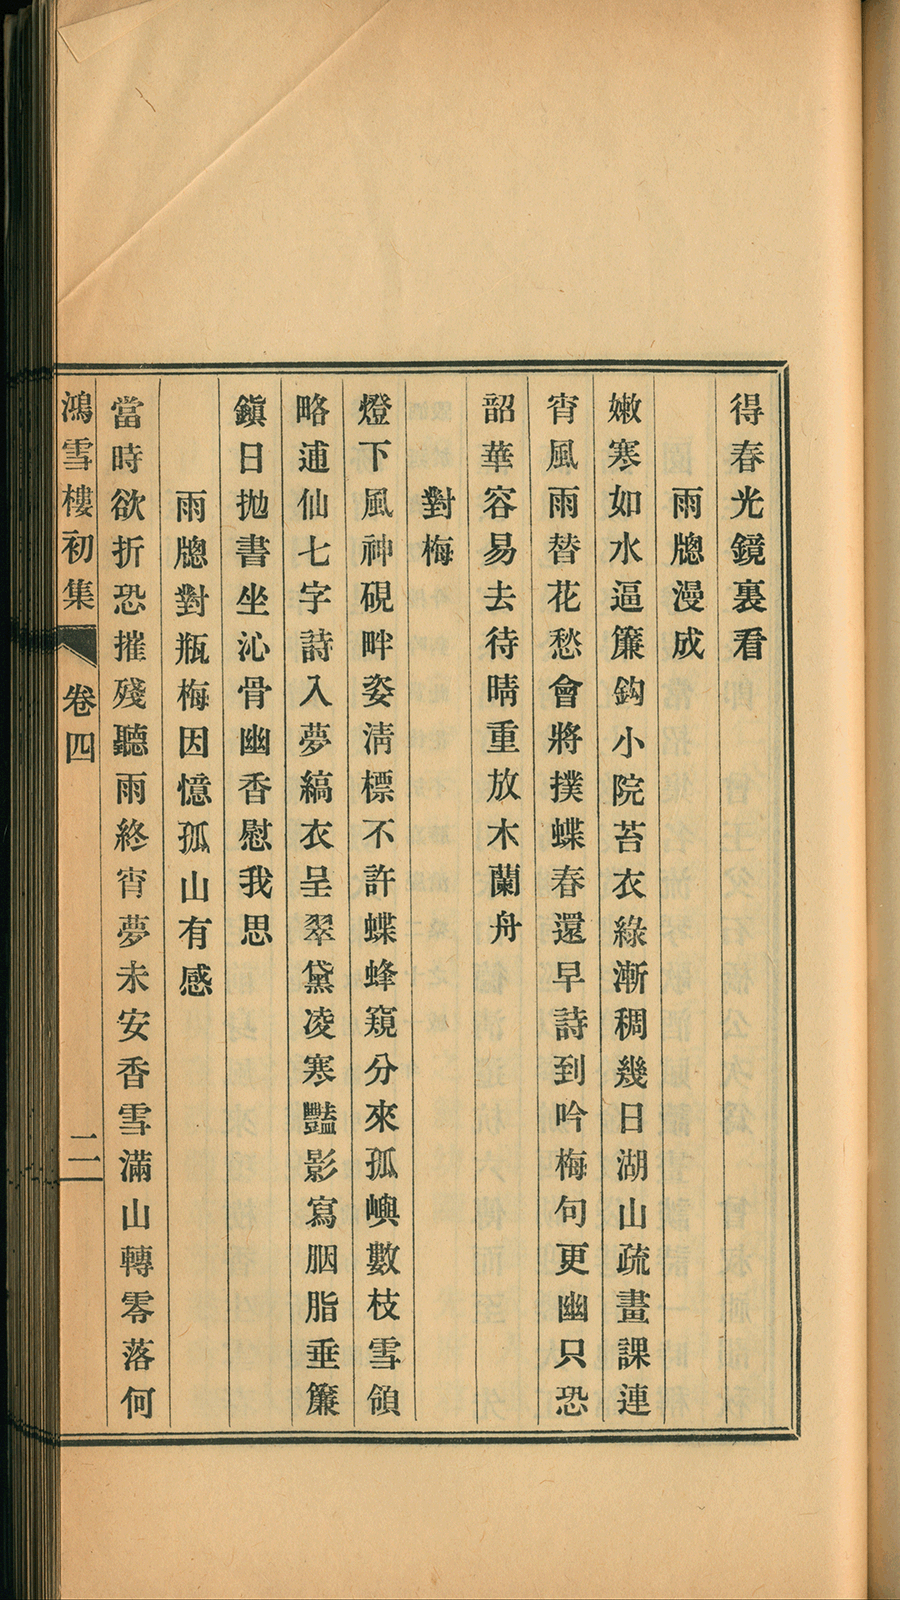 得春光鏡裏看
雨牕漫成
嫩寒如水逼簾鈎小院苔衣綠漸稠幾日湖山疏畫課連
宵風雨替花愁會將撲蝶春還早詩到吟梅句更幽只恐
韶華容易去待晴重放木蘭舟
對梅
燈下風神硯畔姿淸標不許蝶蜂窺分來孤嶼數枝雪領
略逋仙七字詩入夢縞衣呈翠黛凌寒豔影寫胭脂垂簾
鎭日抛書坐沁骨幽香慰我思
雨牕對瓶梅因憶孤山有感
當時欲折恐摧殘聽雨終宵夢未安香雪滿山轉零落何
鴻雪樓初集 卷四 二